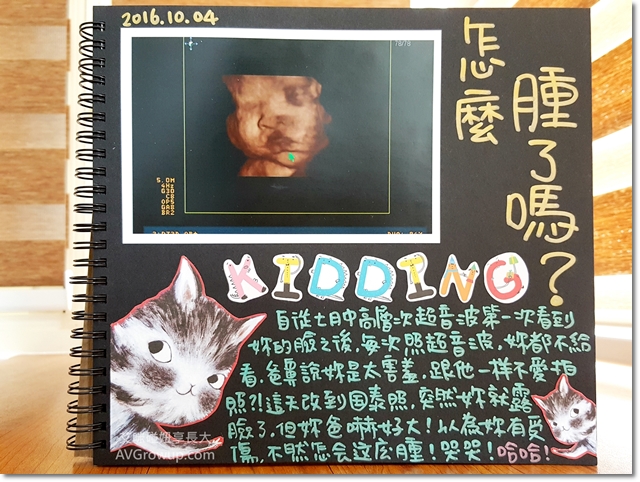 2016.10.04
78/79
怎麼
腫了嗎?
5.0M
4Hz
G3D
CR
OP5
GAB
BR2
KIDDING
自從七月中高層次超音波第一次看到
妳的臉之後,每次照超音波,妳都不給
看,爸鼻說妳是太害羞,跟他一樣不愛拍
照?!這天改到国泰照,突然妳就露
臉了,但妳爸嚇好大!以為妳有受
傷,不然怎会這広腫!哭哭!哈哈!
AVGrowUp.com